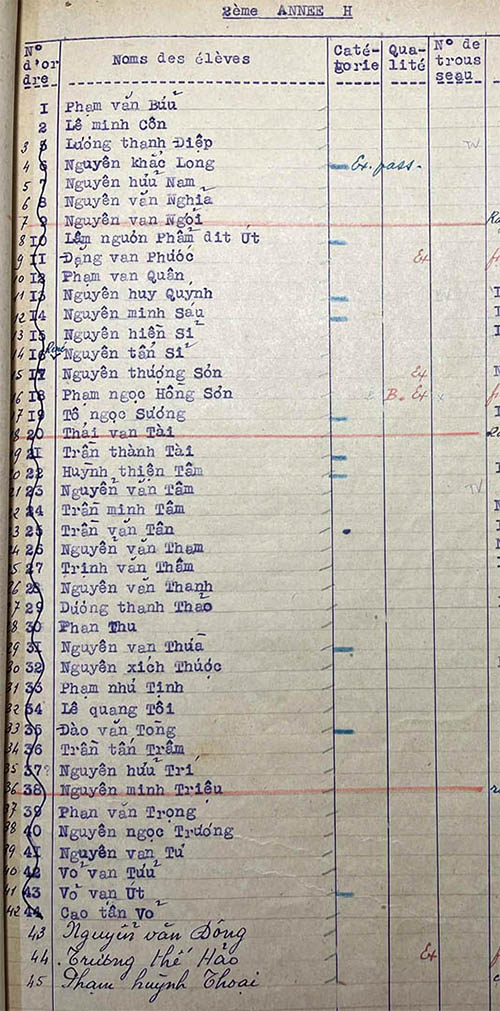 2ème ANNEE H
N° d'or dre Noms des élèves Caté- gorie Qua- lité N° de trous seau
1 Phạm văn Bửu
2 Lê minh Côn
3 Lương thanh Điệp
4 6 Nguyễn khắc Long Ex. pass.
5 7 Nguyễn hữu Nam
6 8 Nguyễn văn Nghĩa
7 9 Nguyễn van Ngởi
8 10 Lâm nguơn Phẩm dit Út
9 11 Đặng van Phước Ex
10 12 Phạm van Quân
11 13 Nguyễn huy Quýnh
12 14 Nguyễn minh Sáu
13 15 Nguyễn hiền Sĩ
14 16 Nguyễn tấn Sĩ
15 17 Nguyễn thượng Sỏn Ex
16 18 Phạm ngọc Hồng Sỏn B. Ex
17 19 Tô ngọc Sương
18 20 Thái van Tài
19 21 Trần thành Tài
20 22 Huỳnh thiện Tâm
21 23 Nguyễn văn Tâm TV
22 24 Trần minh Tâm
23 25 Trần văn Tân
24 26 Nguyễn văn Tham
25 27 Trịnh văn Thắm
26 28 Nguyễn văn Thanh
27 29 Dương thanh Thảo
28 30 Phan Thu
29 31 Nguyễn van Thưa
30 32 Nguyễn xích Thước
31 33 Phạm như Tịnh
32 34 Lê quang Tôi
33 35 Đào văn Tòng
34 36 Trần tấn Trâm
35 37 Nguyễn hữu Trí
36 38 Nguyễn minh Triệu
37 39 Phan văn Trọng
38 40 Nguyễn ngọc Trương
39 41 Nguyễn van Tư
40 42 Võ van Tựu
41 43 Võ van Út
42 44 Cao tấn Võ
43 Nguyễn văn Đông
44 Trương thế Hảo Ex
45 Phạm huỳnh Thoại